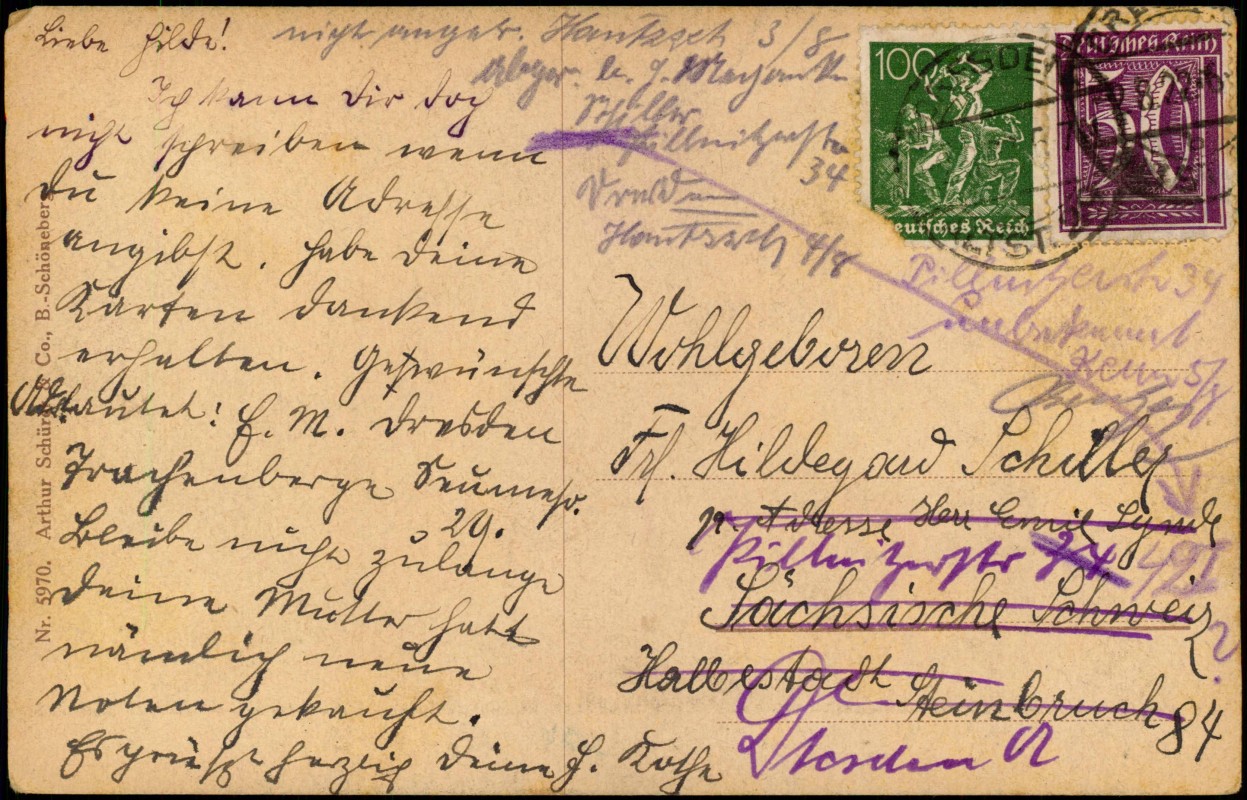 Liebe Hilde!
Ich kann Dir doch
nicht schreiben wenn
Du keine Adresse
angibst. Habe Deine
Karten dankend
erhalten. Gewünschte
Adr. lautet: E. M. Dresden
Trachenberge Seumestr.
29.
Bleibe nicht zulange
Deine Mutter hatt
nämlich neue
Noten gekauft.
Es grüsst herzig Deine H. Kothe
Nr. 5970. Arthur Schür & Co., B.-Schöneberg
nicht anger. Hantzsch 3/8
Schiller
Pillnitzerstr
34
Dresden
Hantzsch 4/8
100
Deutsches Reich
Deutsches Reich
50
DRESDEN
ALTST.
Pillnitzerstr 34
unbekannt
Wohlgeboren
Frl. Hildegard Schiller
p. Adresse Herr Emil
Pillnitzerstr 34
Sächsische Schweiz
Halbestadt Steinbruch 84
Dresden A